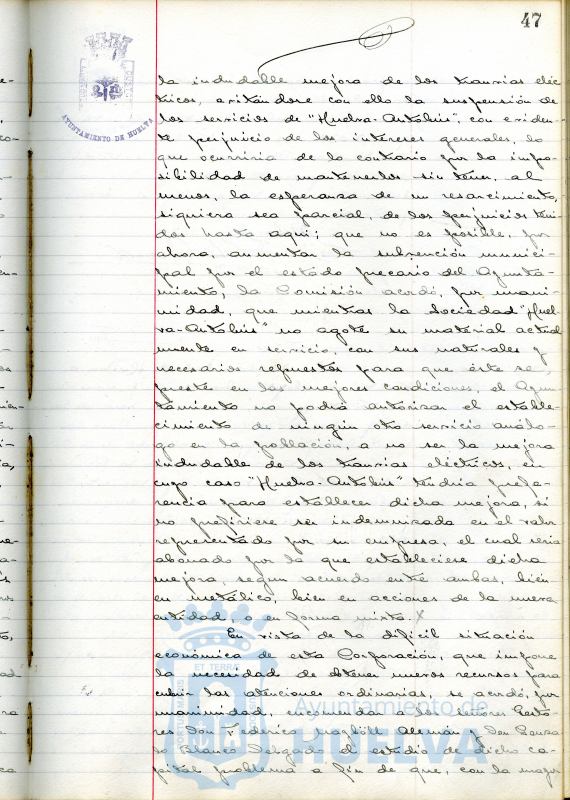 47
AYUNTAMIENTO DE HUELVA
la indudable mejora de los tranvías eléc
tricos, evitándose con ello la suspensión de
los servicios de "Huelva-Autobús", con eviden-
te perjuicio de los intereses generales, lo
que ocurriría de lo contrario por la impo-
sibilidad de mantenerlos sin tener, al
menos, la esperanza de un resarcimiento,
siquiera sea parcial, de los perjuicios teni-
dos hasta aquí; que no es posible, por
ahora, aumentar la subvención munici-
pal por el estado precario del Ayunta-
miento; la Comisión acordó, por unani-
midad, que mientras la Sociedad "Huel-
va-Autobús" no agote su material actual
mente en servicio, con sus naturales y
necesarios repuestos para que éste se
preste en las mejores condiciones, el Ayun-
tamiento no podrá autorizar el estable-
cimiento de ningún otro servicio análo-
go en la población, a no ser la mejora
indudable de los tranvías eléctricos, en
cuyo caso "Huelva-Autobús" tendría prefe-
rencia para establecer dicha mejora, si
no prefiriere ser indemnizada en el valor
representado por su empresa, el cual sería
abonado por la que estableciese dicha
mejora, según acuerdo entre ambas, bien
en metálico, bien en acciones de la nueva
entidad, o en forma mixta.
En vista de la difícil situación
económica de esta Corporación, que impone
la necesidad de obtener nuevos recursos para
cubrir las atenciones ordinarias, se acordó, por
unanimidad, encomendar a los señores Gesto-
res Don Federico Alemán y Don Gonza
lo Blanco Delgado el estudio de dicho ca-
pital problema a fin de que, con la mayor
ET TERRA
Ayuntamiento de
HUELVA